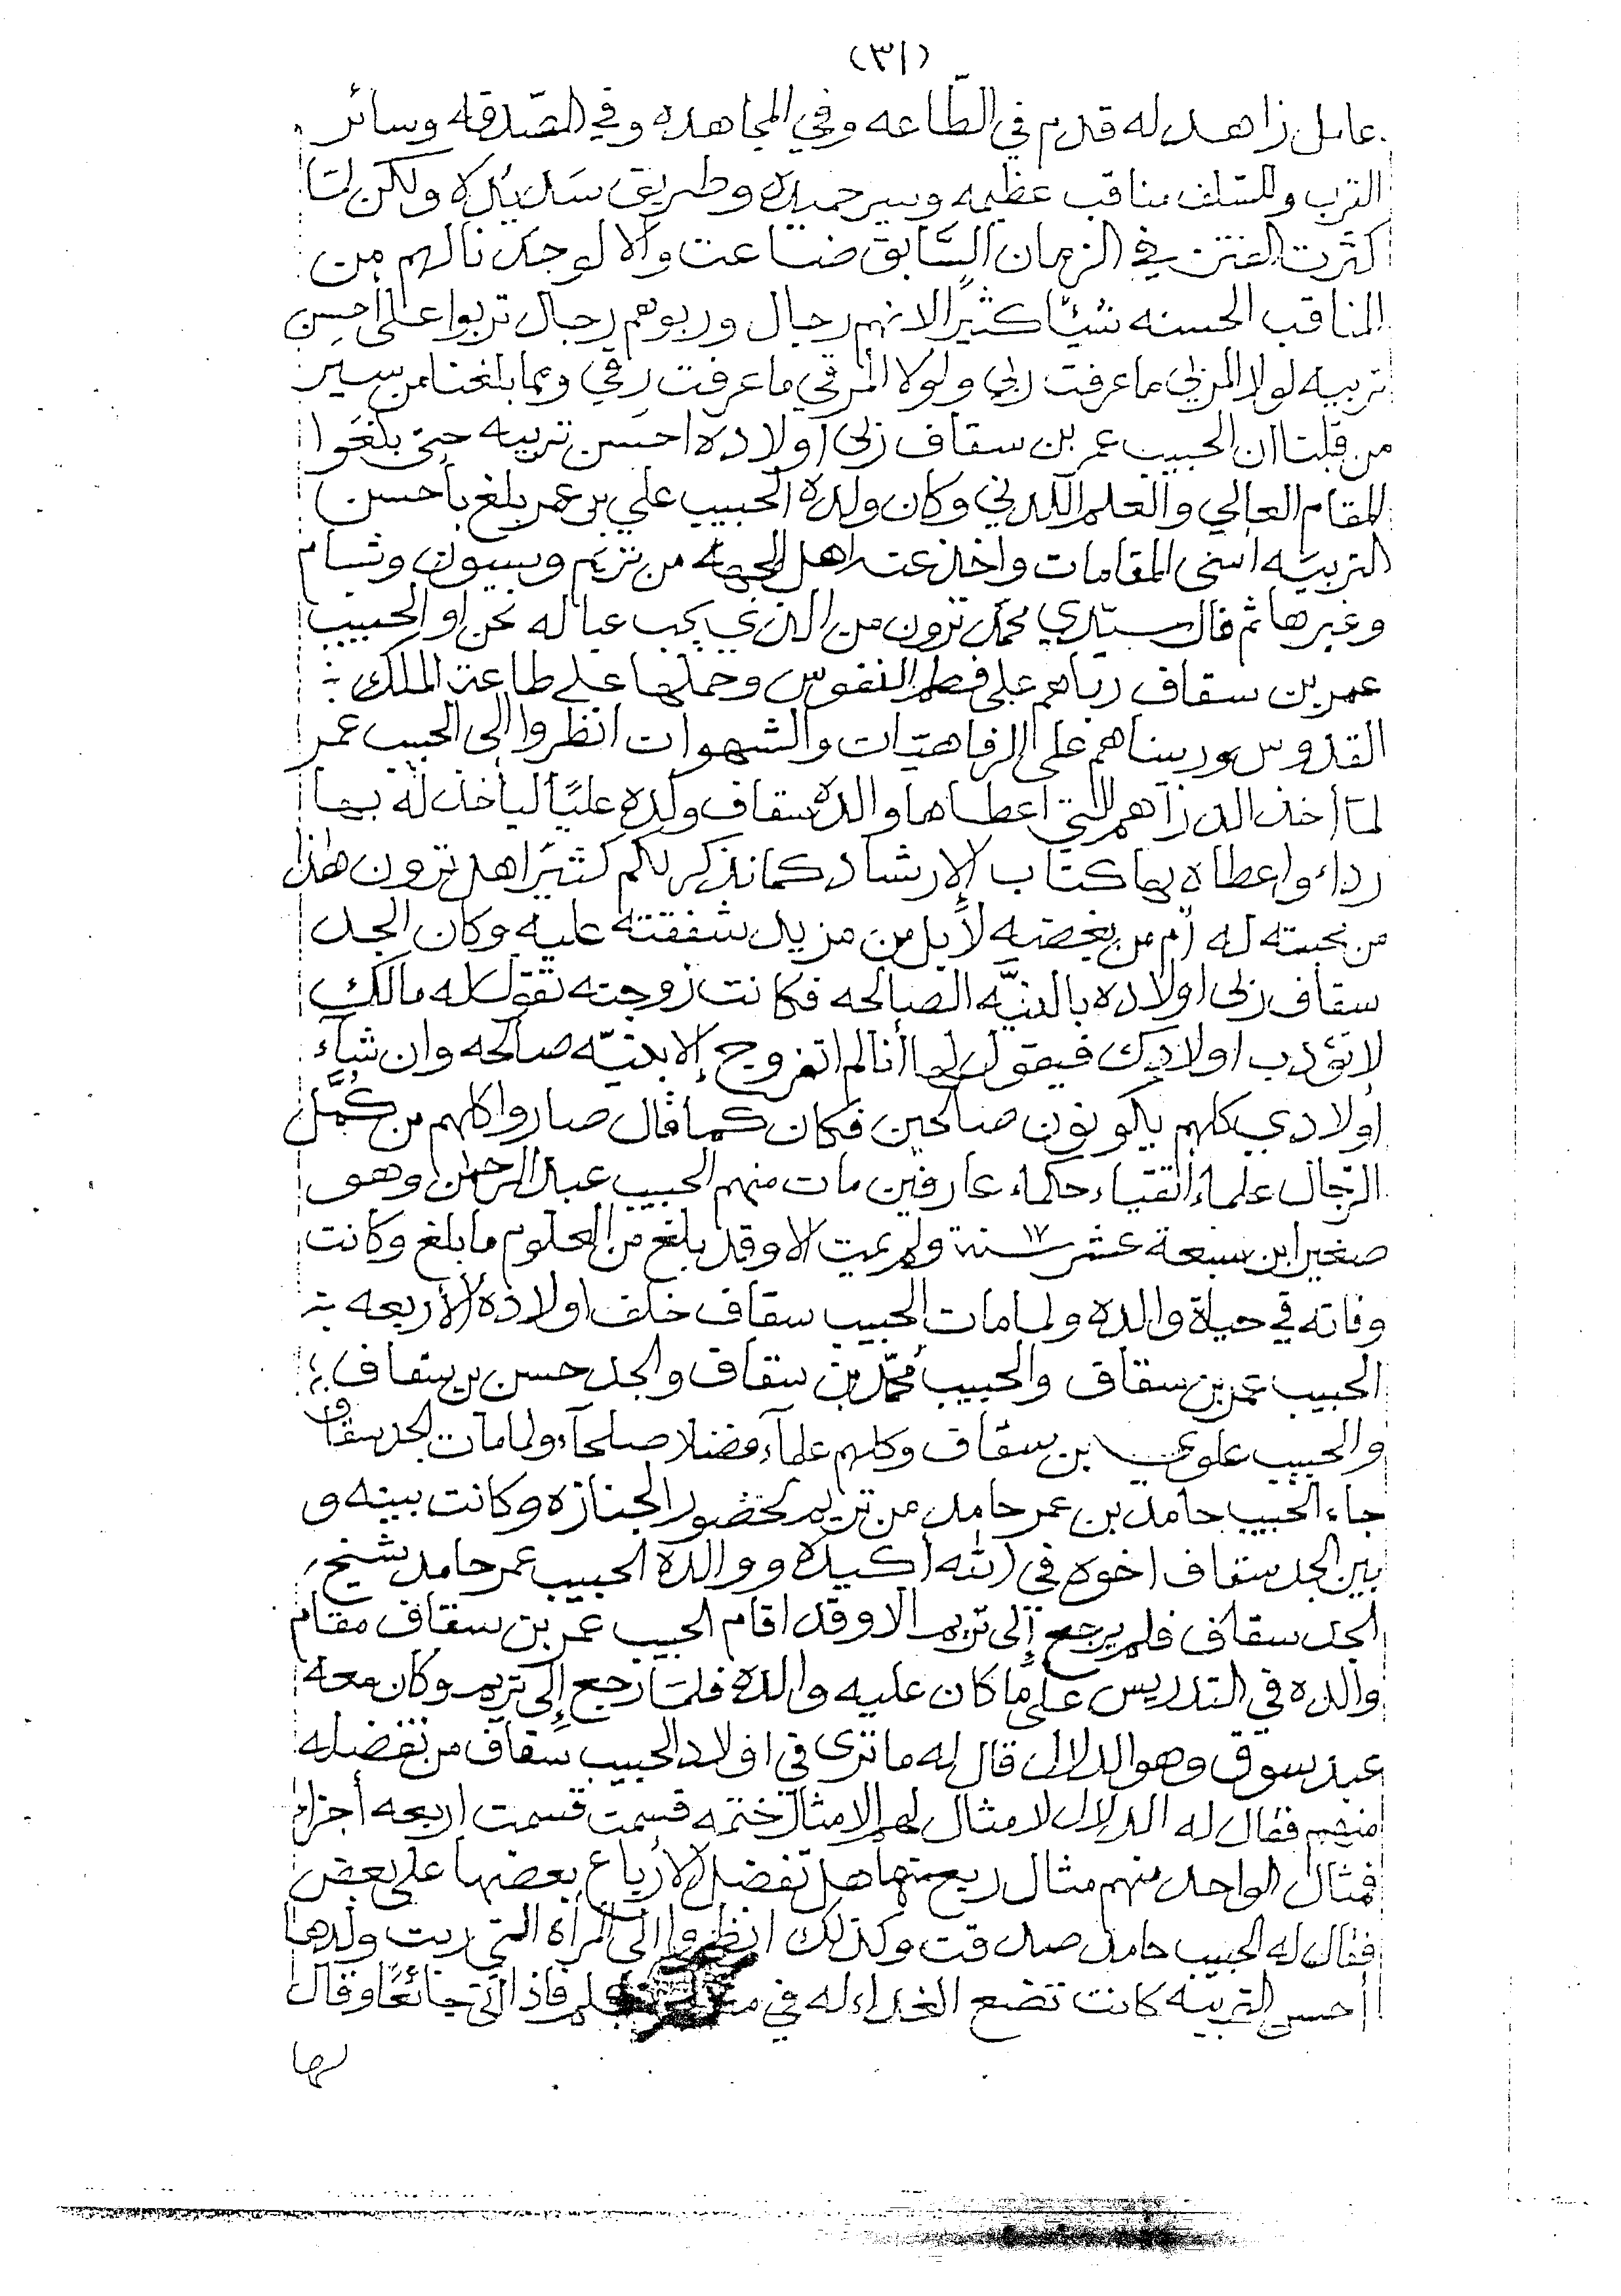 (٣١)
عامل زاهد له قدم في الطّاعه وفي المجاهده وفي الصّدقه وسائر
القرب وللسّلف مناقب عظيمه وسير حميدة وطريق سَديدة ولكن لمّا
كثرت الفتن في الزمان السّابق ضاعت وآلا لوجدنا لهم من
المناقب الحسنه شيئًا كثيرًا لانهم رجال وربوهم رجال تربوا على أحسن
تربيه لولا المربي ما عرفت ربي ولولا المرقي ما عرفت رقي ومما بلغنا من سير
من قبلنا ان الحبيب عمر بن سقاف ربى أولاده احسن تربيه حتى بلغوا
المقام العالي والعلم اللدني وكان ولده الحبيب علي بن عمر بلغ بأحسن
التربيّه اسنى المقامات واخذ عنه اهل الجهه من تريم وسيون وشبام
وغيرها ثم قال سيّدي محمّد ترون من الذي يحب عياله نحن او الحبيب
عمر بن سقاف ربّاهم على فطم النفوس وحملها على طاعة الملك
القدوس وربيناهم على الرفاهيّات والشهوات انظروا إلى الحبيب عمر
لمّا أخذ الدراهم التي اعطاها والده سقاف ولده عليًا ليأخذ له بها
رداء واعطاه بها كتاب الإرشاد كما نذكر لكم كثيرًا هل ترون هذا
من محبته له أم من بغضه لأ بل من مزيد شفقته عليه وكان الجد
سقاف ربى اولاده بالنيّه الصالحه فكانت زوجته تقول له مالك
لا تؤدب اولادك فيقول لها أنا لم اتزوج إلا بنيّه صالحه وان شاء
أولادي كلهم يكونون صالحين فكان كما قال صاروا كلهم من كُمَّل
الرّجال علماء اتقياء حكماء عارفين مات منهم الحبيب عبد الرحمن وهو
صغير ابن سبعة عشر ١٧ سنة ولم يمت الا وقد بلغ من العلوم ما بلغ وكانت
وفاته في حياة والده ولما مات الحبيب سقاف خلف اولاده الأربعه
الحبيب عمر بن سقاف والحبيب محمّد بن سقاف والجد حسن بن سقاف
والحبيب علوي بن سقاف وكلهم علماء فضلا صلحاء ولما مات الجد سقاف
جاء الحبيب حامد بن عمر حامد من تريم لحضور الجنازه وكانت بينه و
بين الجد سقاف اخوه في الله أكيدة ووالده الحبيب عمر حامد شيخ
الجد سقاف فلم يرجع إلى تريم الا وقد اقام الحبيب عمر بن سقاف مقام
والده في التدريس على ما كان عليه والده فلمّا رجع إلى تريم وكان معه
عبد سوق وهو الدلال قال له ما ترى في اولاد الحبيب سقاف من تفضله
منهم فقال له الدلال لا مثال لهم الا مثال ختمه قسمت قسمت اربعه أجزاء
فمثال الواحد منهم مثال ربع منها هل تفضل الأرباع بعضها على بعض
فقال له الحبيب حامد صدقت وكذلك انظروا الى المرأه التي ربت ولدها
أحسن التربيه كانت تضع الغداء له في فاذا أتى جائعًا وقال
لها